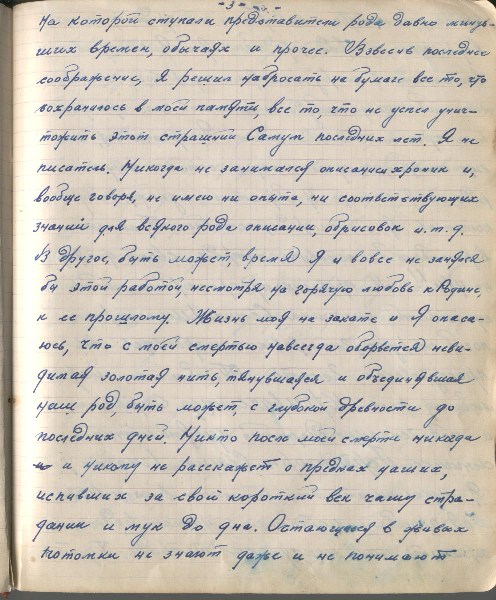 - 3 -
на которой ступали представители рода давно минув-
ших времен, обычаях и прочее. Взвесив последнее
соображение, Я решил набросать на бумаге все то, что
сохранилось в моей памяти, все то, что не успел унич-
тожить этот страшный Самум последних лет. Я не
писатель. Никогда не занимался описанием хроник и,
вообще говоря, не имею ни опыта, ни соответствующих
знаний для всякого рода описаний, обрисовок и.т.д.
В другое, быть может, время Я и вовсе не занялся
бы этой работой, несмотря на горячую любовь к Родине,
к ее прошлому. Жизнь моя на закате и Я опаса-
юсь, что с моей смертью навсегда оборвется неви-
димая золотая нить, тянувшаяся и объединявшая
наш род, быть может, с глубокой древности до
последних дней. Никто после моей смерти никогда
и никому не расскажет о предках наших,
испивших за свой короткий век чашу стра-
даний и мук до дна. Остающиеся в живых
потомки не знают даже и не понимают